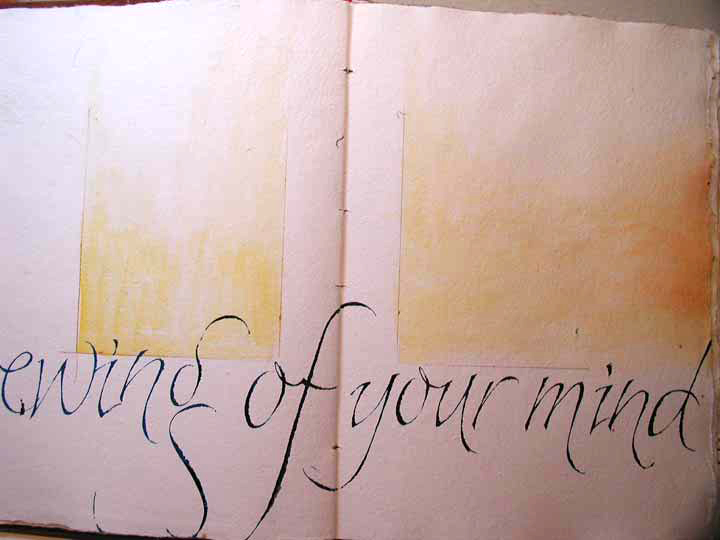 ewing of your mind